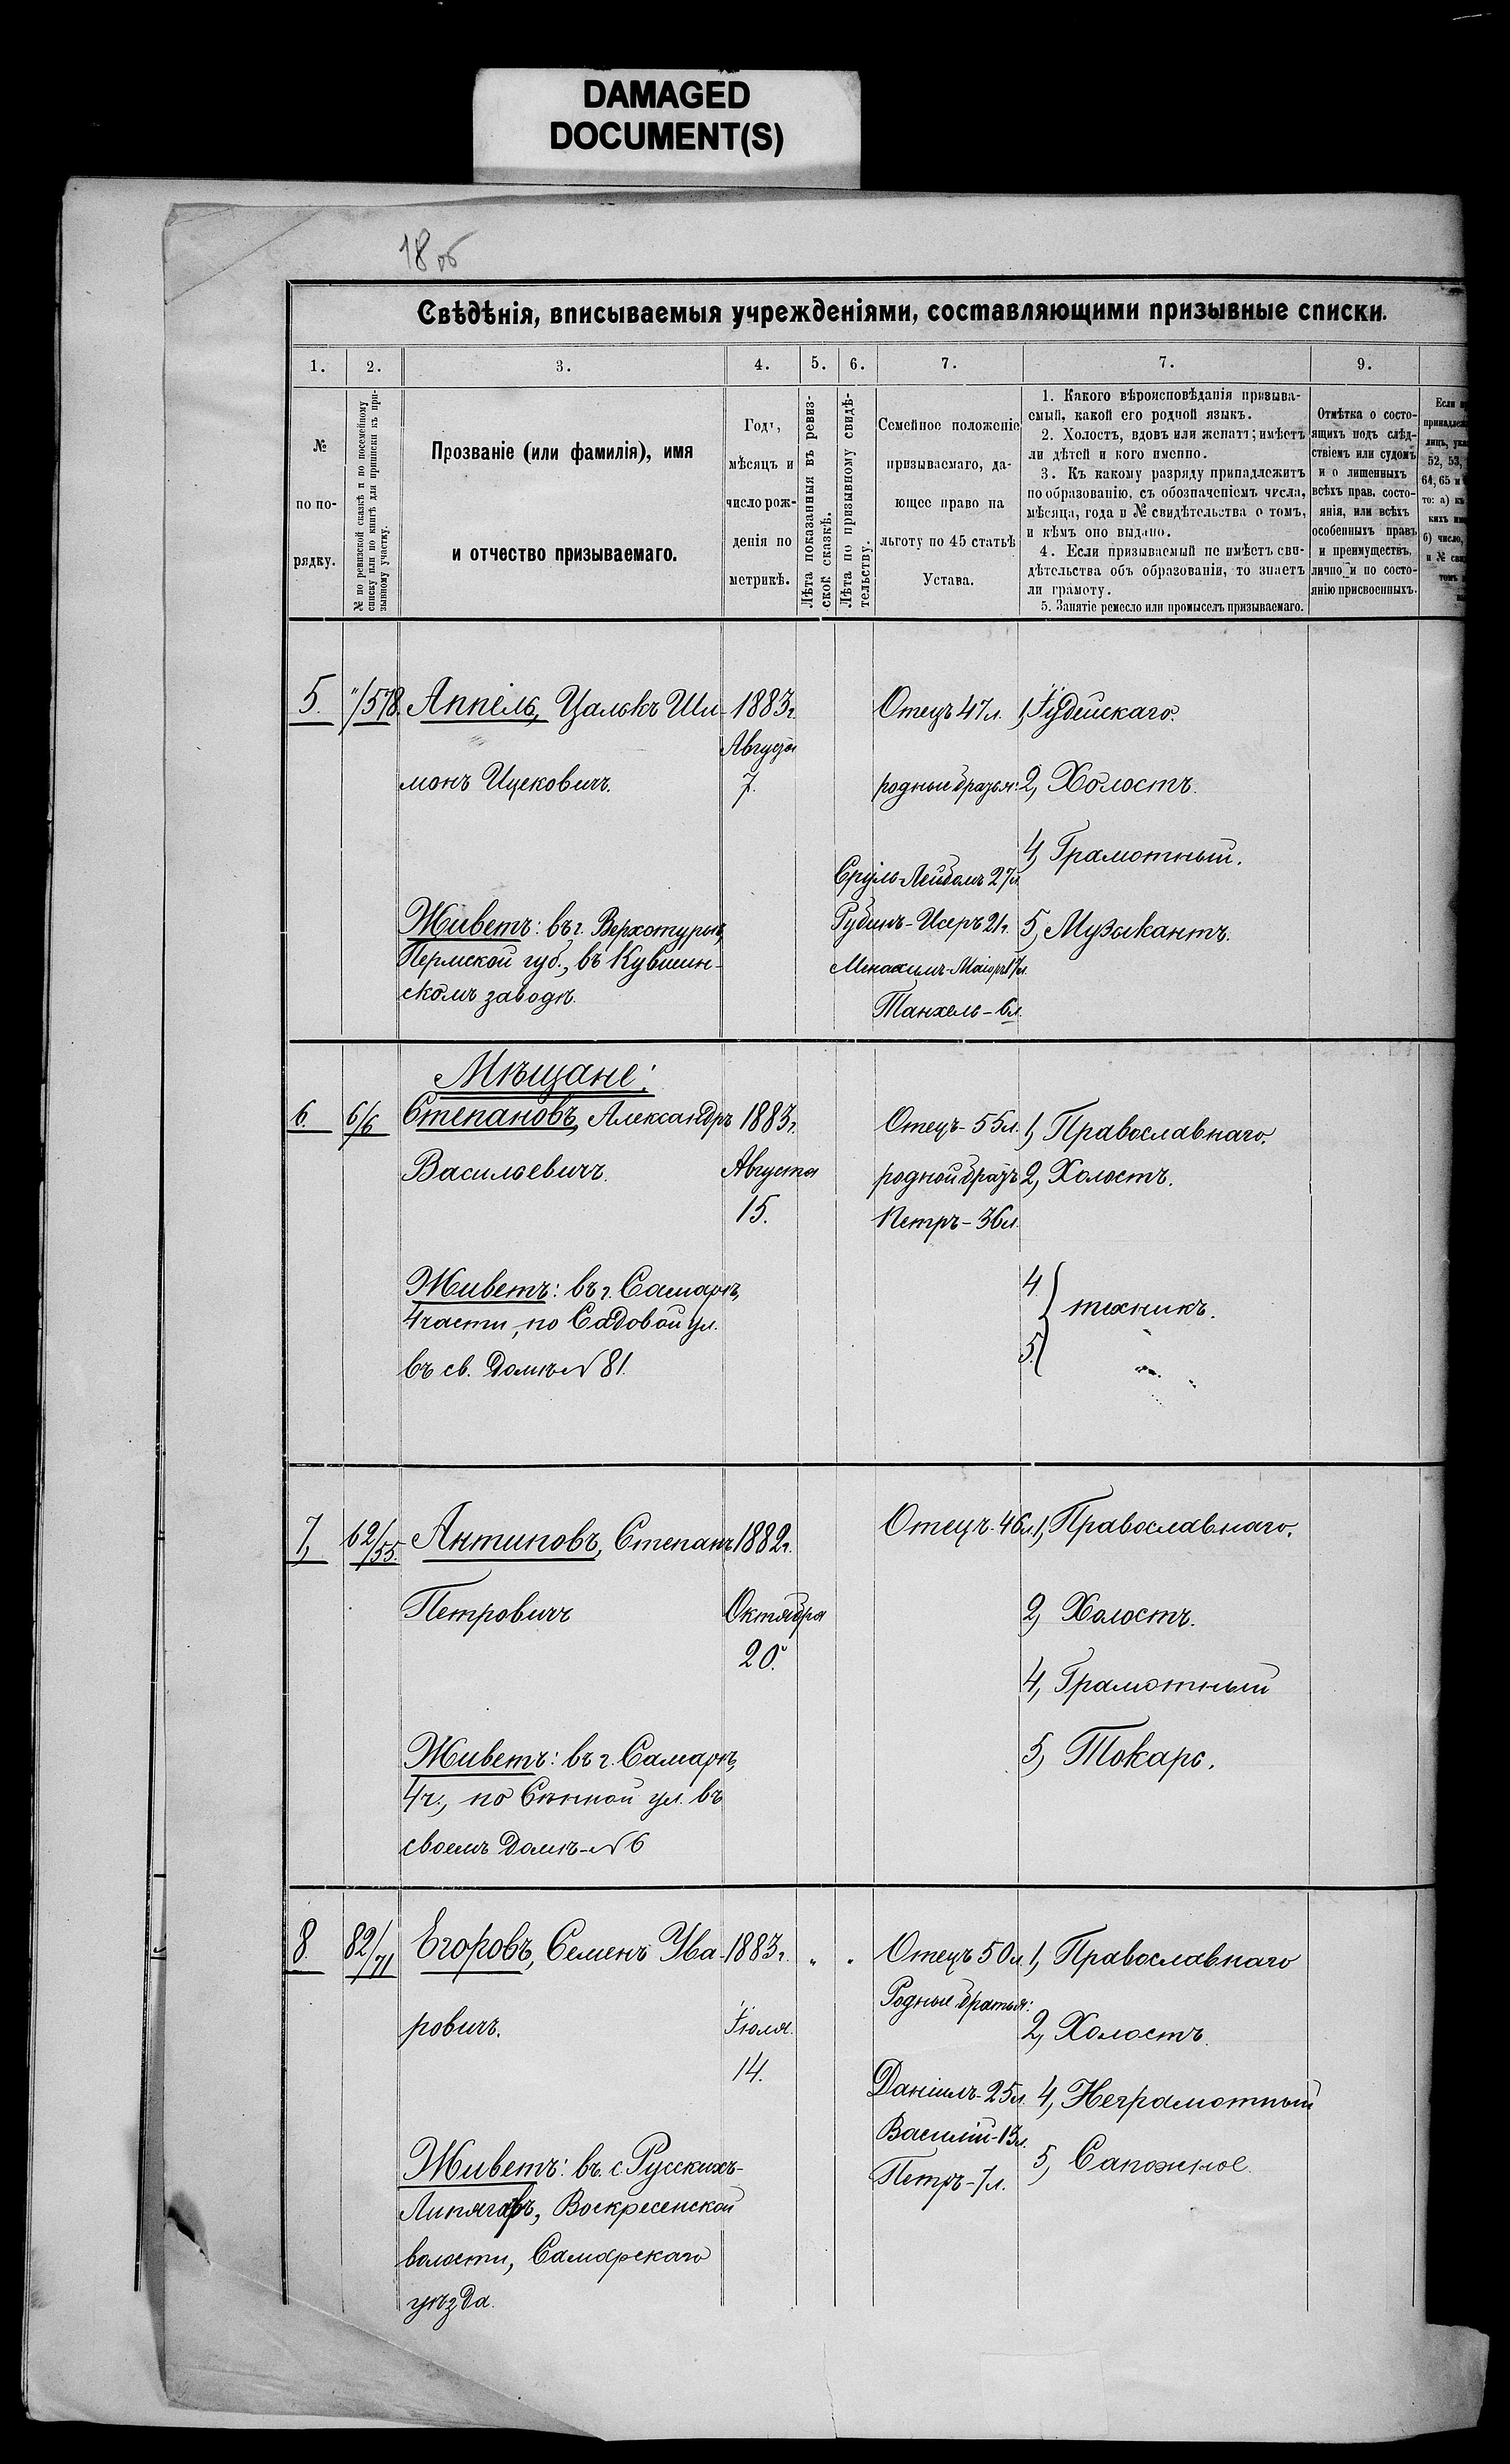 DAMAGED
DOCUMENT(S)
18 об
Свѣдѣнія, вписываемыя учрежденіями, составляющими призывные списки.
1. 2. 3. 4. 5. 6. 7. 7. 9.
№
по по-
рядку.
№ по ревизской сказкѣ и по посемейному
списку или по книгѣ для приписки къ при-
зывному участку.
Прозваніе (или фамилія), имя
и отчество призываемаго.
Годъ,
мѣсяцъ и
число рож-
денія по
метрикѣ.
Лѣта показанныя въ ревиз-
ской сказкѣ.
Лѣта по призывному свидѣ-
тельству.
Семейное положеніе
призываемаго, да-
ющее право на
льготу по 45 статьѣ
Устава.
1. Какого вѣроисповѣданія призыва-
емый, какой его родной языкъ.
2. Холостъ, вдовъ или женатъ; имѣетъ
ли дѣтей и кого именно.
3. Къ какому разряду принадлежитъ
по образованію, съ обозначеніемъ числа,
мѣсяца, года и № свидѣтельства о томъ,
и кѣмъ оно выдано.
4. Если призываемый не имѣетъ сви-
дѣтельства объ образованіи, то знаетъ
ли грамоту.
5. Занятіе ремесло или промыселъ призываемаго.
Отмѣтка о состо-
ящихъ подъ слѣд-
ствіемъ или судомъ
и о лишенныхъ
всѣхъ прав. состо-
янія, или всѣхъ
особенныхъ правъ
и преимуществъ,
лично и по состо-
янію присвоенныхъ.
Если
52, 53,
64, 65 и
то: а)
б) число,
и №
5. "/578. Аппель, Цалькъ Шли- 1883г. Отецъ 47л. 1, Іудейскаго.
Августа
монъ Ицековичъ. 7. родные братья: 2, Холостъ.
4, Грамотный.
Сруль-Лейбамъ 27л.
Живетъ: въ г. Верхотурьѣ, Рубинъ-Исеръ 21г. 5, Музыкантъ.
Пермской губ., въ Кувшин- Менахимъ-Маіоръ 17л.
скомъ заводѣ.
Танхель-6л.
Мѣщане:
6. 6/6 Степановъ, Александръ 1883г. Отецъ-55л. 1, Православнаго.
Васильевичъ. Августа родной братъ 2, Холостъ.
15. Петръ-36л.
Живетъ: въ г. Самарѣ, 4
4 части, по Садовой ул. техникъ.
въ св. домѣ № 81. 5.
7, 62/55. Антиповъ, Степанъ 1882г. Отецъ-46л. 1, Православнаго.
Петровичъ Октября 2, Холостъ.
20.
4, Грамотный
Живетъ: въ г. Самарѣ, 5, Токарь.
4ч., по Сѣнной ул. въ
своемъ домѣ-№ 6
8. 82/71 Егоровъ, Семенъ Ува- 1883г. " " Отецъ 50л. 1, Православнаго
Родные братья:
ровичъ. Іюля 2, Холостъ.
14.
Даніилъ-25л. 4, Неграмотный
Василій-13л.
Живетъ: въ с. Русскихъ- Петръ-7л. 5, Сапожное.
Липягахъ, Воскресенской
волости, Самарскаго
уѣзда.